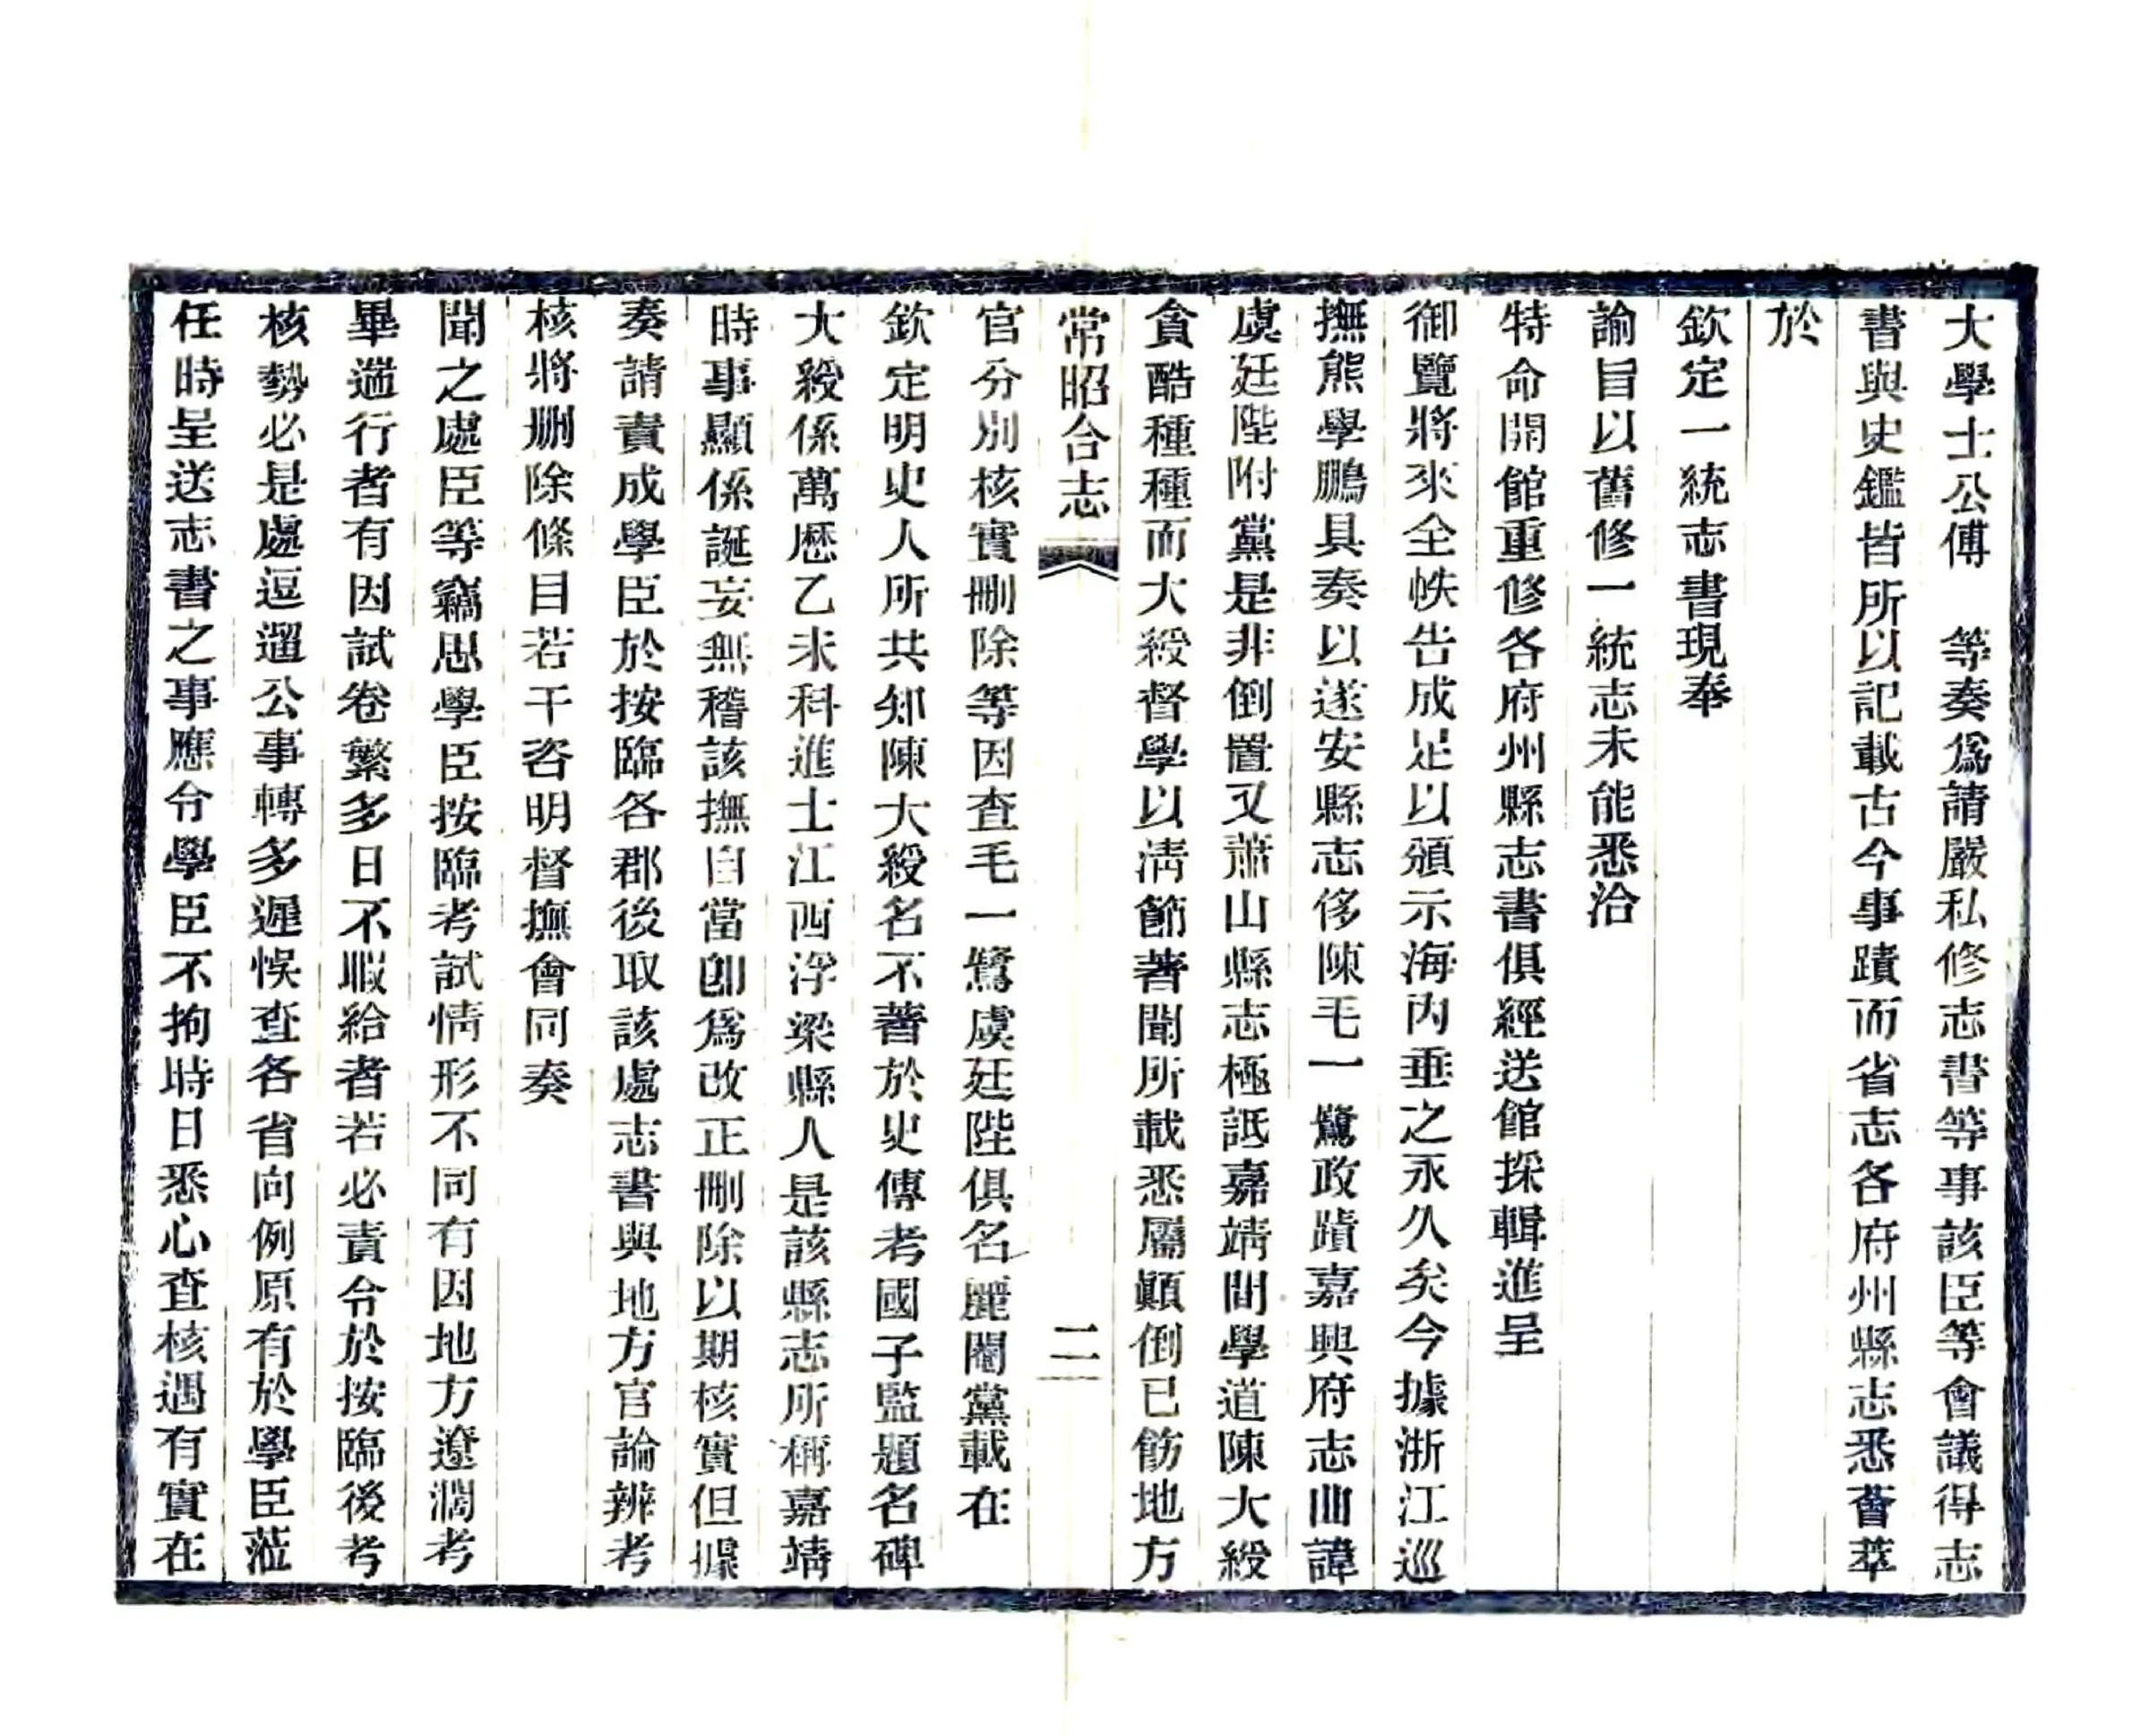 大學士公傅　等奏爲請嚴私修志書等事該臣等會議得志
書與史鑑皆所以記載古今事蹟而省志各府州縣志悉薈萃
於
欽定一統志書現奉
諭旨以舊修一統志未能悉洽
特命開館重修各府州縣志書俱經送館採輯進呈
御覽將來全帙告成足以頒示海內垂之永久矣今據浙江巡
撫熊學鵬具奏以遂安縣志侈陳毛一鷺政蹟嘉興府志曲諱
虞廷陛附黨是非倒置又蕭山縣志極詆嘉靖間學道陳大綬
貪酷種種而大綬督學以淸節著聞所載悉屬顚倒已飭地方
常昭合志
二
官分別核實刪除等因查毛一鷺虞廷陛俱名麗閹黨載在
欽定明史人所共知陳大綬名不著於史傳考國子監題名碑
大綬係萬歷乙未科進士江西浮梁縣人是該縣志所稱嘉靖
時事顯係誕妄無稽該撫自當卽爲改正刪除以期核實但據
奏請責成學臣於按臨各郡後取該處志書與地方官論辨考
核將刪除條目若干咨明督撫會同奏
聞之處臣等竊思學臣按臨考試情形不同有因地方遼濶考
畢遄行者有因試卷繁多日不暇給者若必責令於按臨後考
核勢必是處逗遛公事轉多遲悞查各省向例原有於學臣蒞
任時呈送志書之事應令學臣不拘時日悉心查核遇有實在